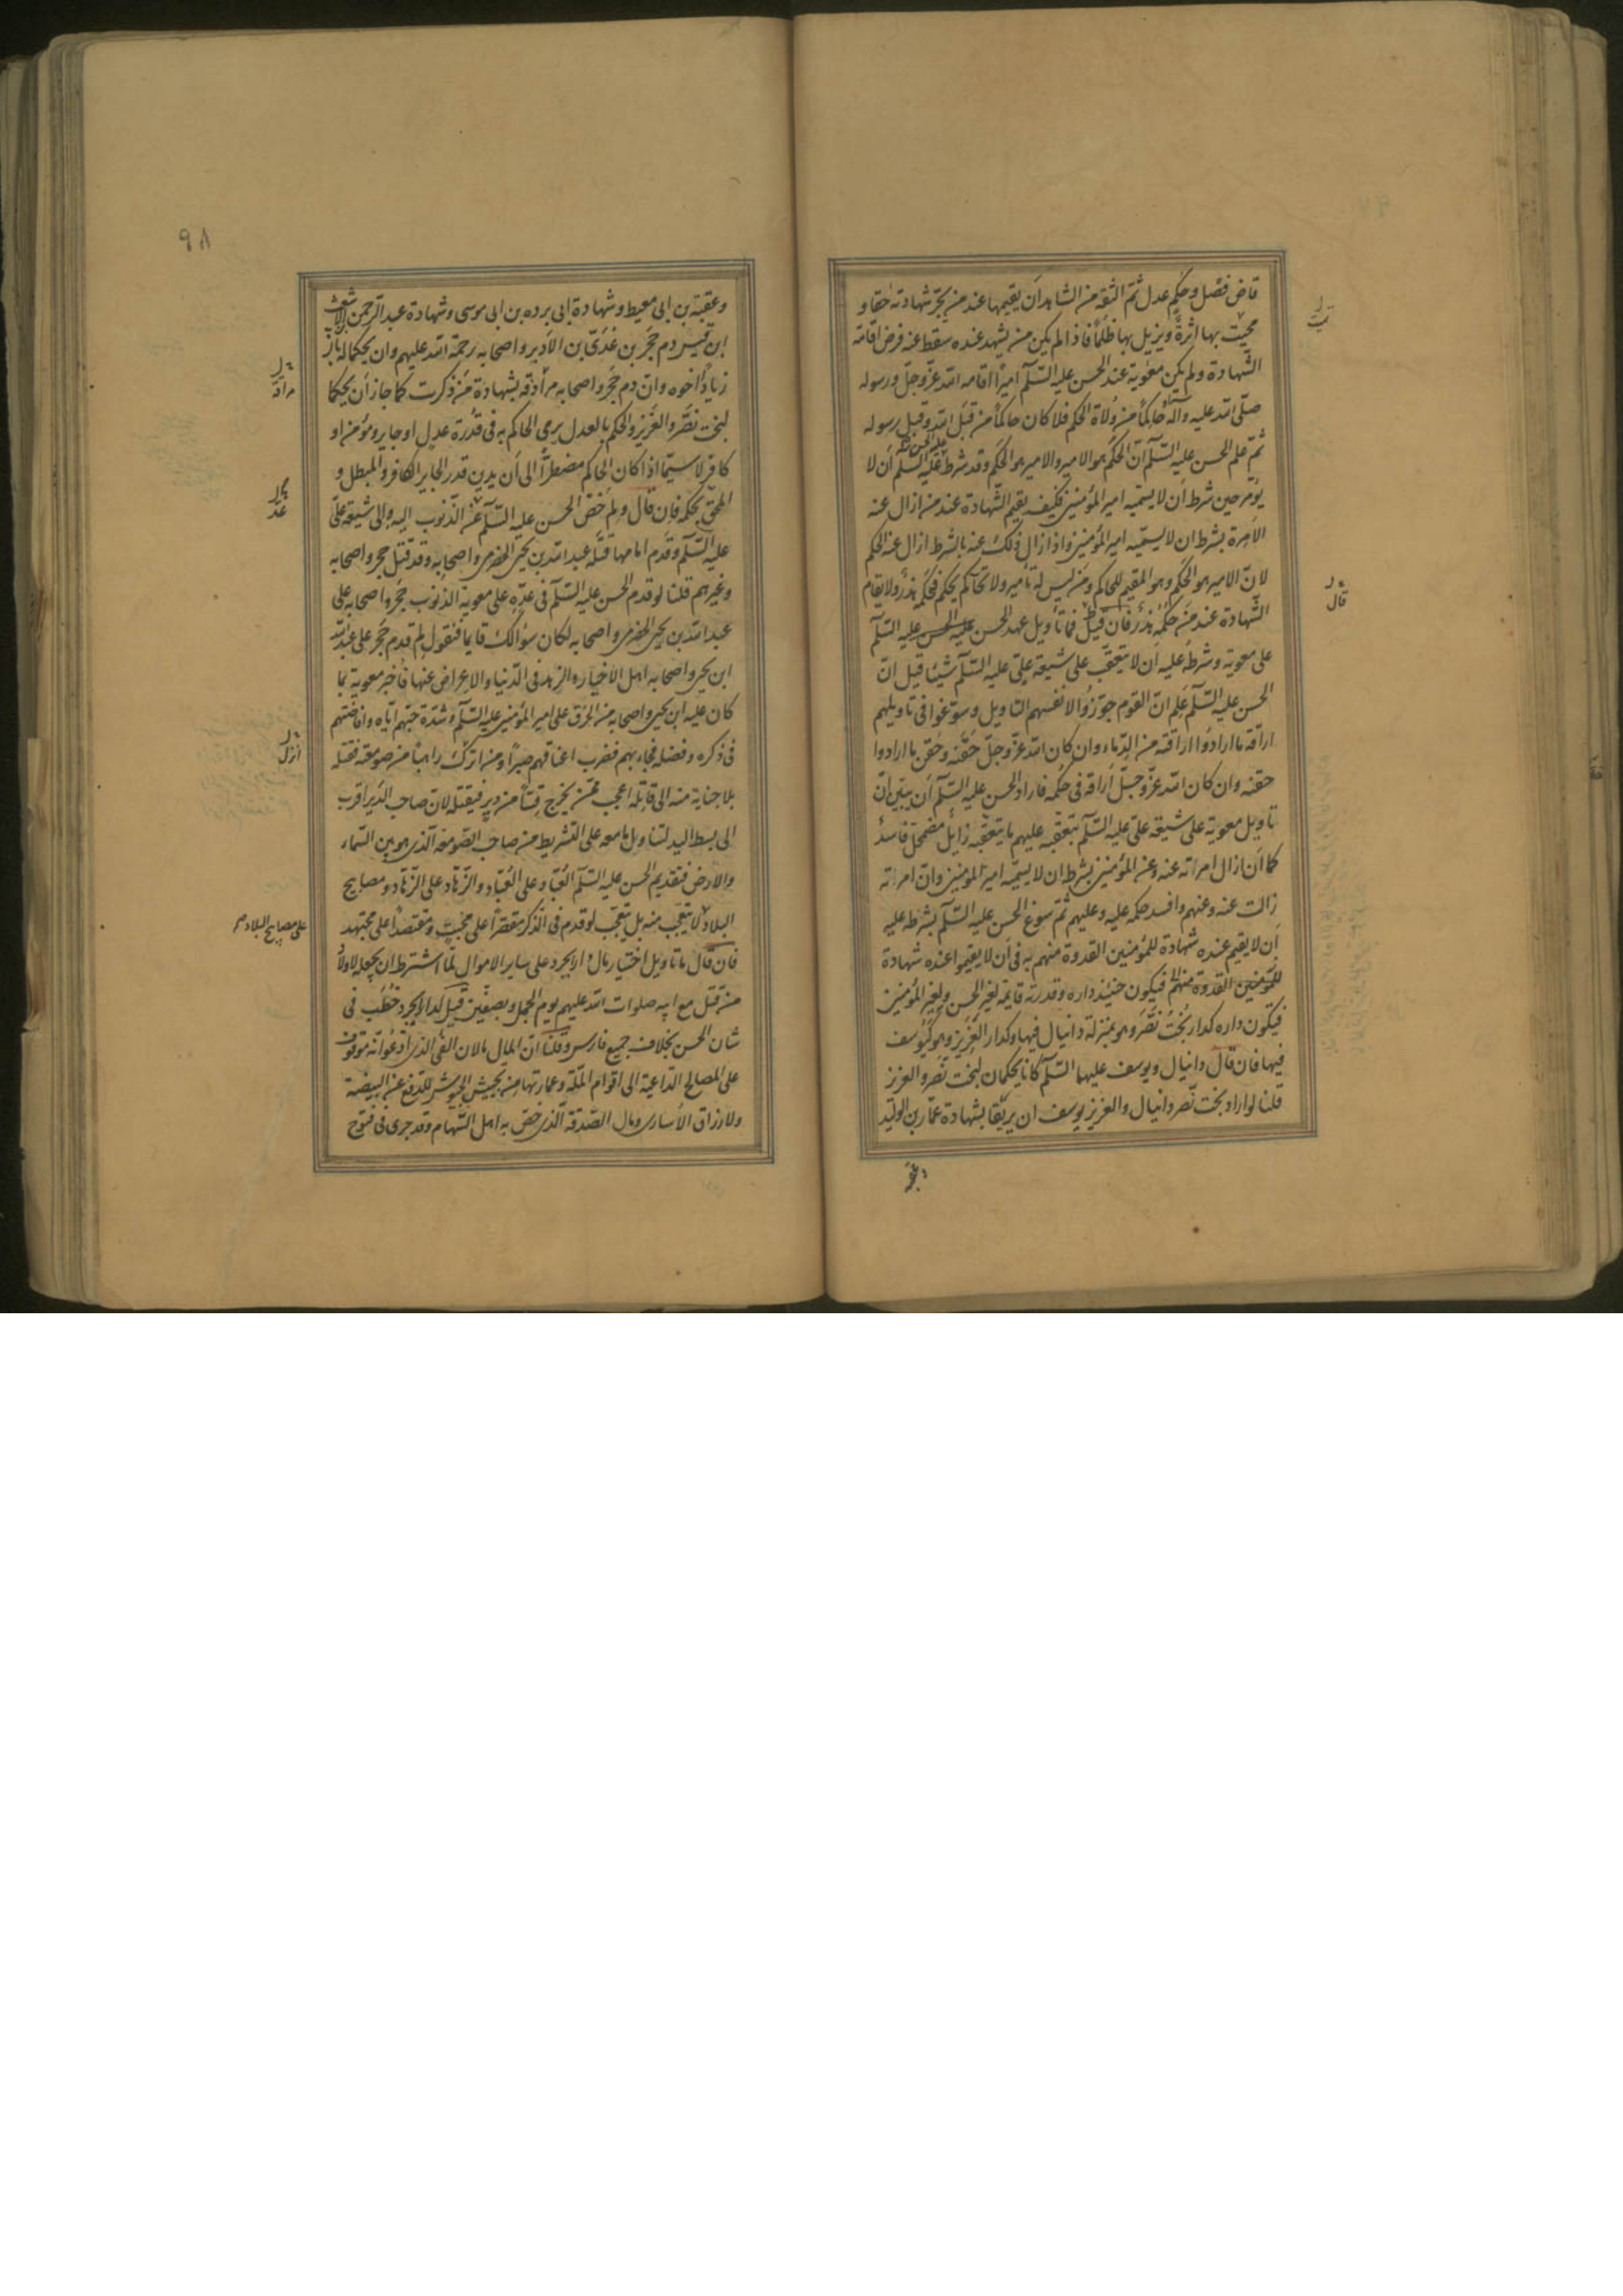 قاض فصل و حكم عدل ثم الثقة من الشاهد ان يقيمها عند من يجرّ شهادته حقا و
يميت بها اثرة و يزيل بها ظلما فاذا لم يكن من يشهد عنده سقط عنه فرض اقامة
الشهادة و لم يكن معوية عند الحسن عليه السلم اميرا اقامه الله عز و جل و رسوله
صلى الله عليه و آله حاكما من ولاة الحكم فلا كان حاكما من قبل الله و قبل رسوله
ثم علم الحسن عليه السلم ان الحكم هو الامير و الامير هو الحكم و قد شرط عليه الحسن عليه السلم ان لا
يؤمر حين شرط ان لا يسميه امير المؤمنين فكيف يقيم الشهادة عند من ازال عنه
الامرة بشرط ان لا يسميه امير المؤمنين و اذا ازال ذلك عنه بالشرط ازال عنه الحكم
لان الامير هو الحكم و هو المقيم للحاكم و من ليس له تامير و لا تحاكم يحكم فحكمه هذر و لا يقام
الشهادة عند من حكمه هذر فان قيل فما تاويل عهد الحسن عليه الحسن عليه السلم
على معوية و شرط عليه ان لا يتعقب على شيعة علي عليه السلم شيئا قيل ان
الحسن عليه السلم علم ان القوم جوزوا لانفسهم التاويل و سوغوا في تاويلهم
اراقة ما ارادوا اراقته من الدماء و ان كان الله عز و جل حقنه و حقن ما ارادوا
حقنه و ان كان الله عز و جل اراقه في حكمه فاراد الحسن عليه السلم ان يبين ان
تاويل معوية على شيعة علي عليه السلم بتعقبه عليهم ما يتعقبه زايل مضمحل فاسد
كما ان ازال امرته عنه و عن المؤمنين بشرط ان لا يسميه امير المؤمنين و ان امرته
زالت عنه و عنهم و افسد حكمه عليه و عليهم ثم سوغ الحسن عليه السلم بشرطه عليه
ان لا يقيم عنده شهادة للمؤمنين القدوة منهم به في ان لا يقيموا عنده شهادة
للمؤمنين القدوة منهم فيكون حينئذ داره و قدرته قايمة لغير الحسن و لغير المؤمنين
فيكون داره كدار بخت نصر و هو بمنزلة دانيال فيها و كدار العزيز و هو كيوسف
فيها فان قال دانيال و يوسف عليهما السلم كانا يحكمان لبخت نصر و العزيز
قلنا لو اراد بخت نصر دانيال و العزيز يوسف ان يريقا بشهادة عمار بن الوليد
و عقبة
قال
و عقبة بن ابي معيط و شهادة ابي برده بن ابي موسى و شهادة عبد الرحمن بن الاشعث
ابن قيس دم حجر بن عدى بن الادبر و اصحابه رحمة الله عليهم و ان يحكما له بان
زيادا اخوه و ان دم حجر و اصحابه مراقه بشهادة من ذكرت كما جاز ان يحكما
لبخت نصر و العزيز و الحكم بالعدل يرمى الحاكم به في قدرة عدل او جاير و مؤمن او
كافر لا سيما اذا كان الحاكم مضطرا الى ان يدين قدر الجاير الكافر و المبطل و
المحق بحكمه فان قال و لم خص الحسن عليه السلم عن الذنوب اليه و الى شيعة علي
عليه السلم و قدم امامها قتله عبد الله بن يحيى الحضرمى و اصحابه و قد قتل حجر و اصحابه
و غيرهم قلنا لو قدم الحسن عليه السلم في عده على معوية الذنوب حجر و اصحابه على
عبد الله بن يحيى الحضرمى و اصحابه لكان سؤالك قايما فتقول لم قدم حجر على عبد الله
ابن يحيى و اصحابه اهل الاخيار و الزهد في الدنيا و الاعراض عنها فاخبر معوية بما
كان عليه ابن يحيى و اصحابه من الحرق على امير المؤمنين عليه السلم و شدة حبهم اياه و افاضتهم
في ذكره و فضله فجاء بهم فضرب اعناقهم صبرا و من انزل راهبا من صومعته فقتله
بلا جناية منه الى قاتله اعجب ممن يخرج قسا من دير فيقتله لان صاحب الدير اقرب
الى بسط اليد لتناول ما معه على التشريط من صاحب الصومعة الذى هو بين السماء
و الارض فتقديم الحسن عليه السلم العباد على العباد و الزهاد على الزهاد و مصابيح
البلاد لا تتعجب منه بل يتعجب لو قدم في الذكر مقصرا على مخبت و مقتصدا على مجتهد
فان قال ما تاويل اختيار مال دارابجرد على ساير الاموال لما اشترط ان يجعله لاولاد
من قتل مع ابيه صلوات الله عليهم يوم الجمل و بصفين قيل لدارابجرد خطب في
شان الحسن بخلاف جميع فارس و قلنا ان المال مالان الفئ الذى ادعوا انه موقوف
على المصالح الداعية الى اقوام الملة و عمارتها من تجييش الجيوش للدفع عن البيضة
و لارزاق الاسارى و مال الصدقة الذى خص به اهل السهام و قد جرى في فتوح
٩٨
مراقة
عد
انزل
على مصابيح البلاد